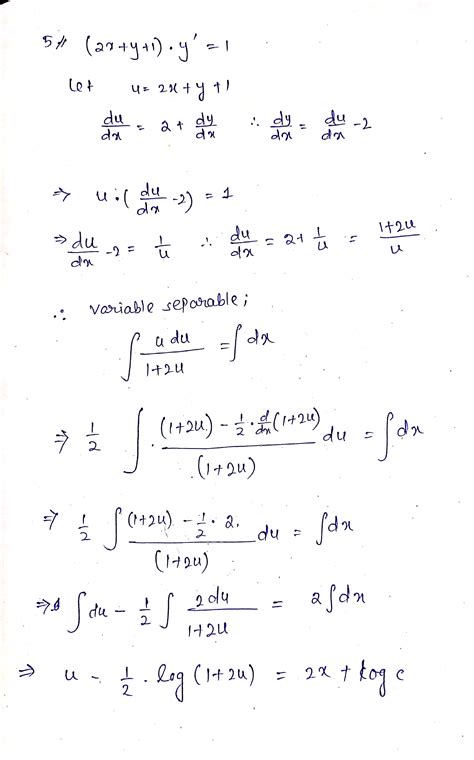 5// (2x+y+1)·y' = 1
Let u = 2x+y+1
du/dx = 2 + dy/dx ∴ dy/dx = du/dx -2
⇒ u·(du/dx -2) = 1
⇒ du/dx -2 = 1/u ∴ du/dx = 2+ 1/u = (1+2u)/u
∴ variable separable;
∫ u du/(1+2u) = ∫ dx
⇒ 1/2 ∫ · ((1+2u) - 1/2 · d/dx (1+2u))/(1+2u) du = ∫ dx
⇒ 1/2 ∫ ((1+2u) - 1/2 · 2.)/(1+2u) du = ∫ dx
⇒ ∫ du - 1/2 ∫ 2du/(1+2u) = 2∫dx
⇒ u - 1/2 · log (1+2u) = 2x + log c